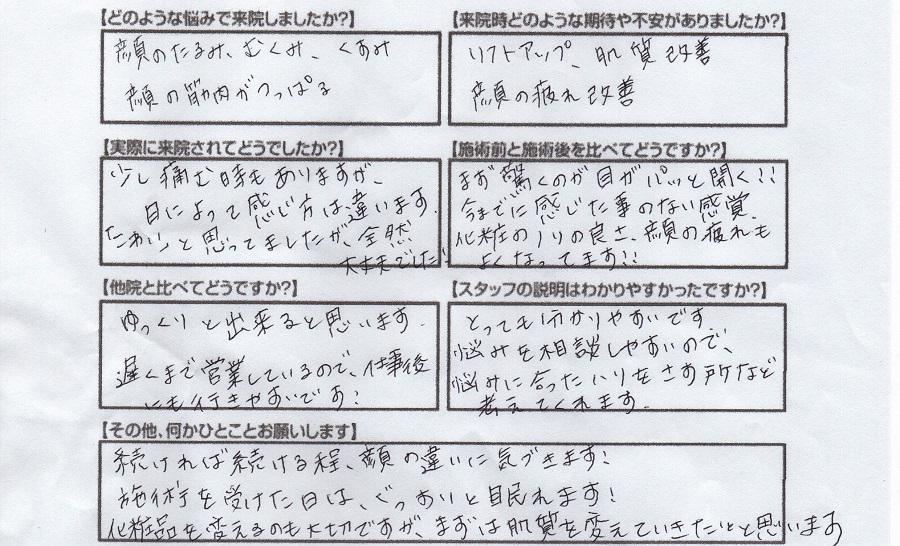 【どのような悩みで来院しましたか?】
顔のたるみ、むくみ、くすみ
顔の筋肉がつっぱる
【来院時どのような期待や不安がありましたか?】
リフトアップ、肌質改善
顔の疲れ改善
【実際に来院されてどうでしたか?】
少し痛む時もありますが、
日によって感じ方は違います。
こわいと思ってましたが、全然
大丈夫でした!
【施術前と施術後を比べてどうですか?】
まず驚くのが目がパッと開く!!
今までに感じた事のない感覚。
化粧のノリの良さ、顔の疲れも
よくなってます!!
【他院と比べてどうですか?】
ゆっくりと出来ると思います。
遅くまで営業しているので、仕事後
にも行きやすいです!
【スタッフの説明はわかりやすかったですか?】
とっても分かりやすいです
悩みを相談しやすいので、
悩みに合ったハリをさす所など
考えてくれます。
【その他、何かひとことお願いします】
続ければ続ける程、顔の違いに気づきます!
施術を受けた日は、ぐっすりと眠れます!
化粧品を変えるのも大切ですが、まずは肌質を変えていきたいと思います